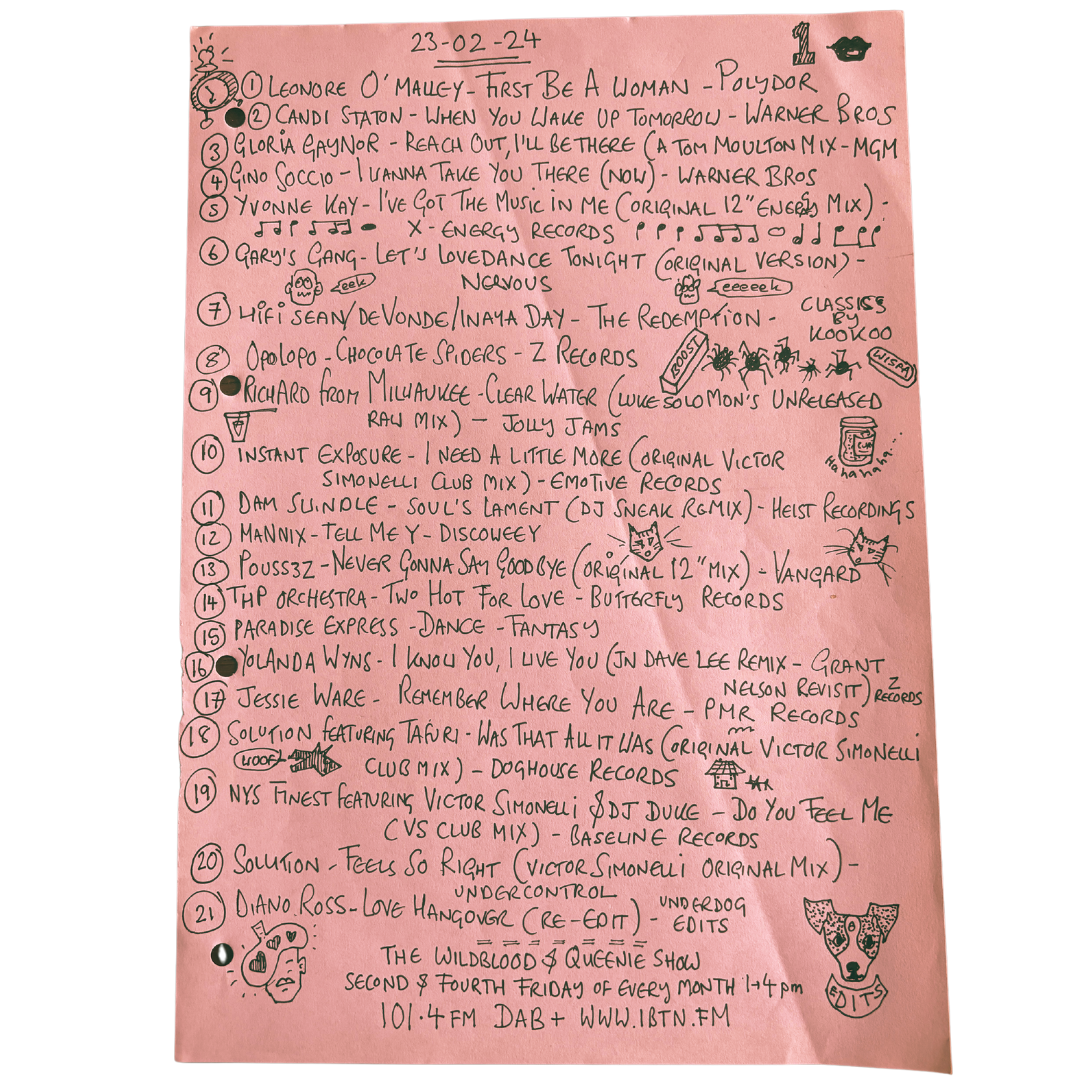 23-02-24
1
① LEONORE O'MALLEY - FIRST BE A WOMAN - POLYDOR
② CANDI STATON - WHEN YOU WAKE UP TOMORROW - WARNER BROS
③ GLORIA GAYNOR - REACH OUT, I'LL BE THERE (A TOM MOULTON MIX - MGM
④ GINO SOCCIO - I WANNA TAKE YOU THERE (NOW) - WARNER BROS
⑤ YVONNE KAY - I'VE GOT THE MUSIC IN ME (ORIGINAL 12" ENERGY MIX) -
X-ENERGY RECORDS
⑥ GARY'S GANG - LET'S LOVEDANCE TONIGHT (ORIGINAL VERSION) -
eek NERVOUS eeeeek
⑦ HIFI SEAN/DEVONDE/INAYA DAY - THE REDEMPTION - CLASSICS
BY
KOOKOO
⑧ OPOLOPO - CHOCOLATE SPIDERS - Z RECORDS BOOST WISPA
⑨ RICHARD FROM MILWAUKEE - CLEAR WATER (LUKE SOLOMON'S UNRELEASED
RAW MIX) - JOLLY JAMS
⑩ INSTANT EXPOSURE - I NEED A LITTLE MORE (ORIGINAL VICTOR
Hahahaha...
SIMONELLI CLUB MIX) - EMOTIVE RECORDS
⑪ DAM SWINDLE - SOUL'S LAMENT (DJ SNEAK REMIX) - HEIST RECORDINGS
⑫ MANNIX - TELL ME Y - DISCOWEEY
⑬ POUSS3Z - NEVER GONNA SAY GOODBYE (ORIGINAL 12" MIX) - VANGARD
⑭ THP ORCHESTRA - TWO HOT FOR LOVE - BUTTERFLY RECORDS
⑮ PARADISE EXPRESS - DANCE - FANTASY
⑯ YOLANDA WYNS - I KNOW YOU, I LIVE YOU (JN DAVE LEE REMIX - GRANT
NELSON REVISIT) Z RECORDS
⑰ JESSIE WARE - REMEMBER WHERE YOU ARE - PMR RECORDS
⑱ SOLUTION FEATURING TAFURI - WAS THAT ALL IT WAS (ORIGINAL VICTOR SIMONELLI
WOOF CLUB MIX) - DOGHOUSE RECORDS
⑲ NYS FINEST FEATURING VICTOR SIMONELLI & DJ DUKE - DO YOU FEEL ME
(VS CLUB MIX) - BASELINE RECORDS
⑳ SOLUTION - FEELS SO RIGHT (VICTOR SIMONELLI ORIGINAL MIX) -
UNDERCONTROL
㉑ DIANO ROSS - LOVE HANGOVER (RE-EDIT) - UNDERDOG
EDITS
THE WILDBLOOD & QUEENIE SHOW
SECOND & FOURTH FRIDAY OF EVERY MONTH 1→4pm
EDITS
101.4 FM DAB+ WWW.1BTN.FM